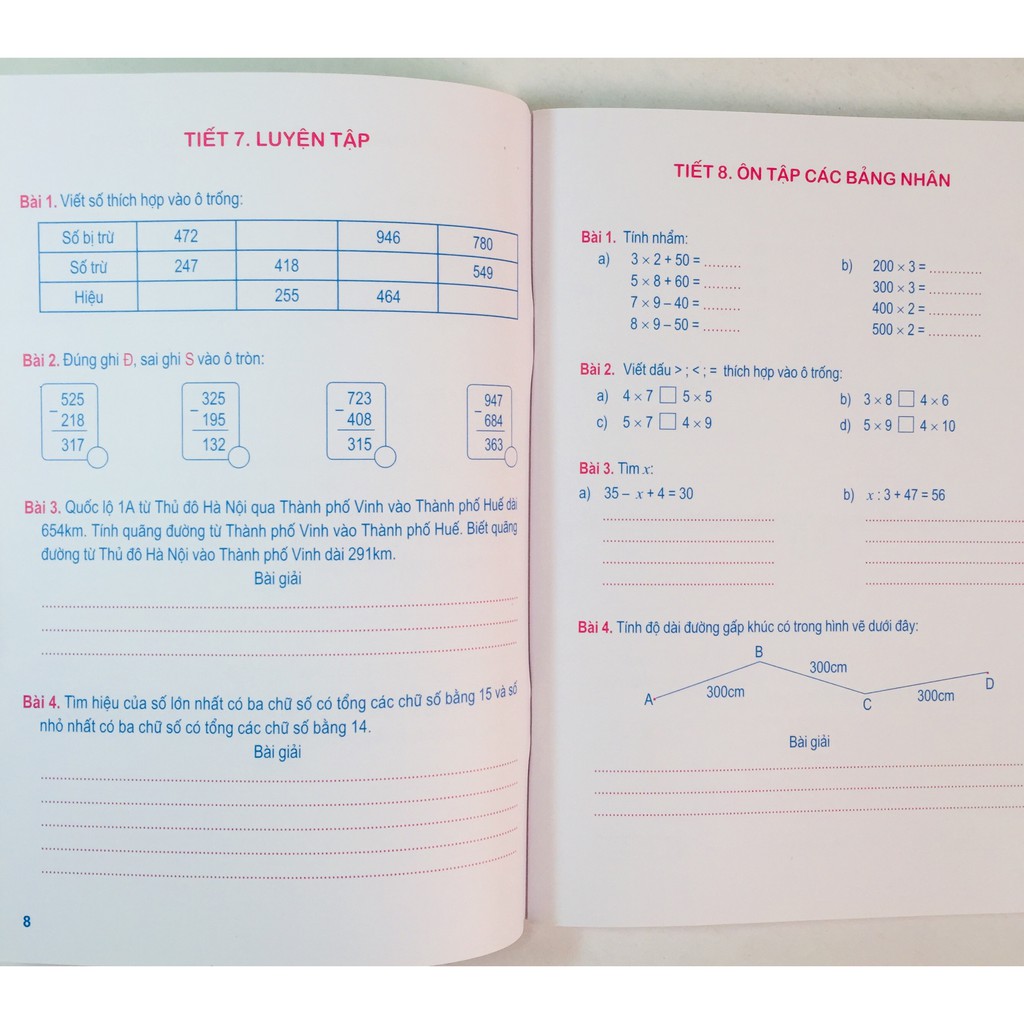 TIẾT 7. LUYỆN TẬP
Bài 1. Viết số thích hợp vào ô trống:
Số bị trừ 472 946 780
Số trừ 247 418 549
Hiệu 255 464
Bài 2. Đúng ghi Đ, sai ghi S vào ô tròn:
525 325 723 947
- 218 - 195 - 408 - 684
317 132 315 363
Bài 3. Quốc lộ 1A từ Thủ đô Hà Nội qua Thành phố Vinh vào Thành phố Huế dài
654km. Tính quãng đường từ Thành phố Vinh vào Thành phố Huế. Biết quãng
đường từ Thủ đô Hà Nội vào Thành phố Vinh dài 291km.
Bài giải
Bài 4. Tìm hiệu của số lớn nhất có ba chữ số có tổng các chữ số bằng 15 và số
nhỏ nhất có ba chữ số có tổng các chữ số bằng 14.
Bài giải
8
TIẾT 8. ÔN TẬP CÁC BẢNG NHÂN
Bài 1. Tính nhẩm:
a) 3 × 2 + 50 = ......... b) 200 × 3 = .............
5 × 8 + 60 = ......... 300 × 3 = .............
7 × 9 – 40 = ......... 400 × 2 = .............
8 × 9 – 50 = ......... 500 × 2 = .............
Bài 2. Viết dấu > ; < ; = thích hợp vào ô trống:
a) 4 × 7 □ 5 × 5 b) 3 × 8 □ 4 × 6
c) 5 × 7 □ 4 × 9 d) 5 × 9 □ 4 × 10
Bài 3. Tìm x:
a) 35 – x + 4 = 30 b) x : 3 + 47 = 56
Bài 4. Tính độ dài đường gấp khúc có trong hình vẽ dưới đây:
B
300cm
A 300cm C 300cm D
Bài giải